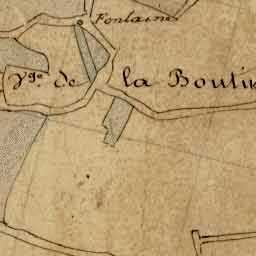 Fontaine
Vge de la Boutin